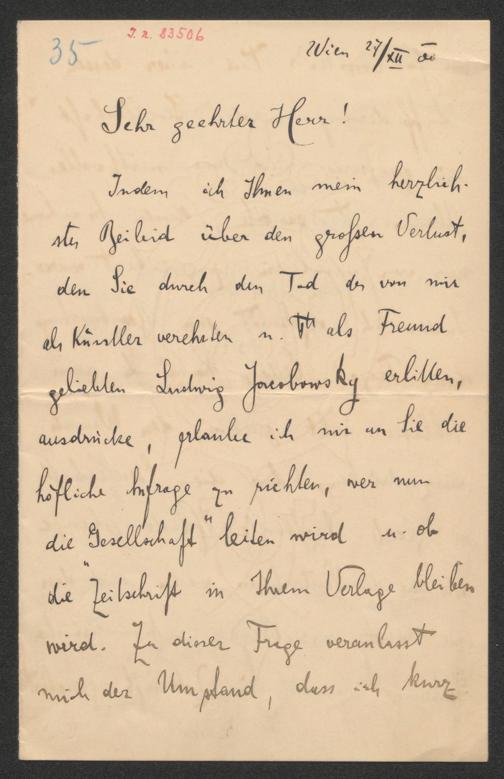 35
I.N. 83506
Wien 27/XII 00
Sehr geehrter Herr!
Indem ich Ihnen mein herzlich-
stes Beileid über den großen Verlust,
den Sie durch den Tod des von mir
als Künstler verehrten u. als Freund
geliebten Ludwig Jacobowsky erlitten,
ausdrücke, erlaube ich mir an Sie die
höfliche Anfrage zu richten, wer nun
die „Gesellschaft" leiten wird u. ob
die Zeitschrift in Ihrem Verlage bleiben
wird. Zu dieser Frage veranlasst
mich der Umstand, dass ich kurz